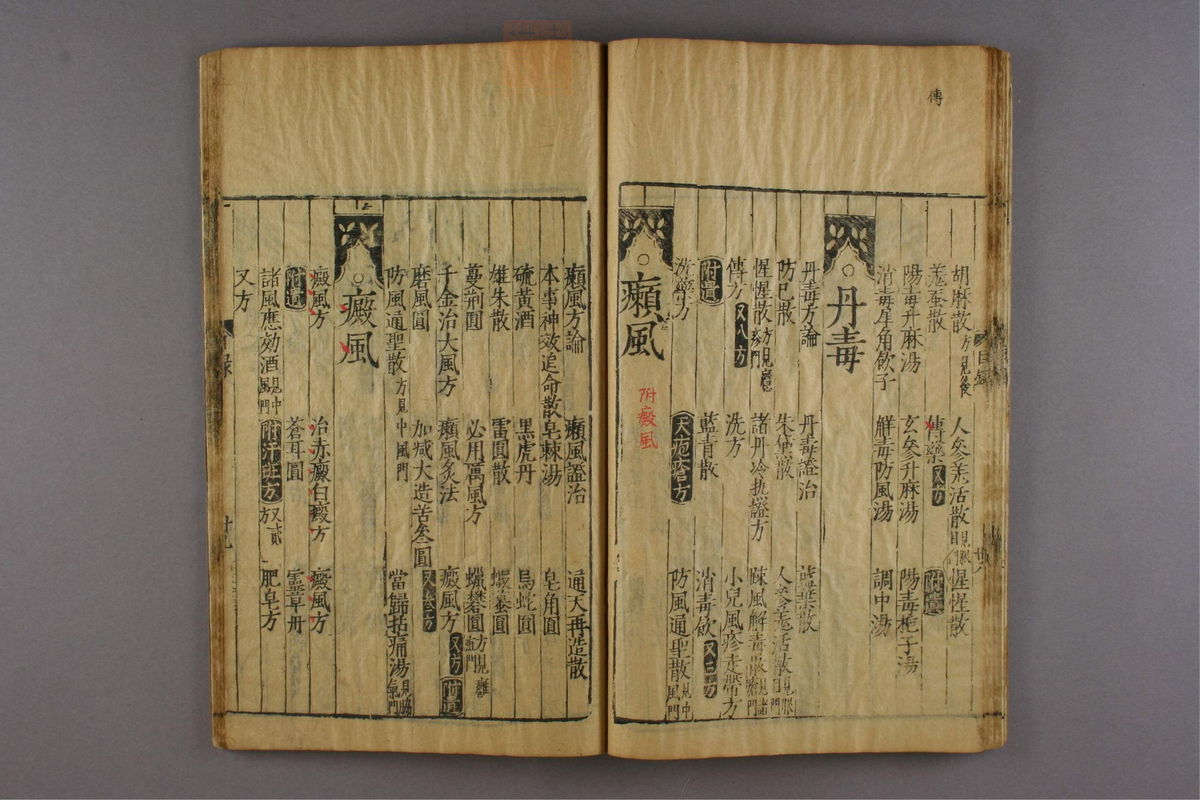 傳
胡麻散方見後 人參羗活散眼見眼門 惺惺散
羗蚕散 傅藥又方 附遺
陽毒升麻湯 玄參升麻湯 陽毒梔子湯
消毒犀角飲子 解毒防風湯 調中湯
丹毒
丹毒方論 丹毒證治 藍葉散
防已散 朱黛散 人參羗活散見眼目門
惺惺散方見癮疹門 諸丹冷熱證方 疎風解毒散見諸瘡門
傅方又八方 洗方 小兒風疹走帶方
附遺 藍青散 消毒飲又二方
洗藥方 天疱瘡方 防風通聖散見中風門
癩風
附癜風
癩風方論 癩風證治 通天再造散
本事神效追命散 皂棘湯 皂角圓
硫黃酒 黑虎丹 烏蛇圓
雄朱散 雷圓散 蝦蟇圓
蔓荆圓 必用厲風方 蠟礬圓方見癰疽門
千金治大風方 癩風灸法 癜風方又方附遺
磨風圓 加减大造苦參圓 又去方
防風通聖散方見中風門 當歸拈痛湯見脚氣門
癜風
癜風方 治赤癜白癜方 癜風方
附遺 蒼耳圓 靈草丹
諸風應効酒見中風門 附汗斑方 放貳 肥皂方
又方